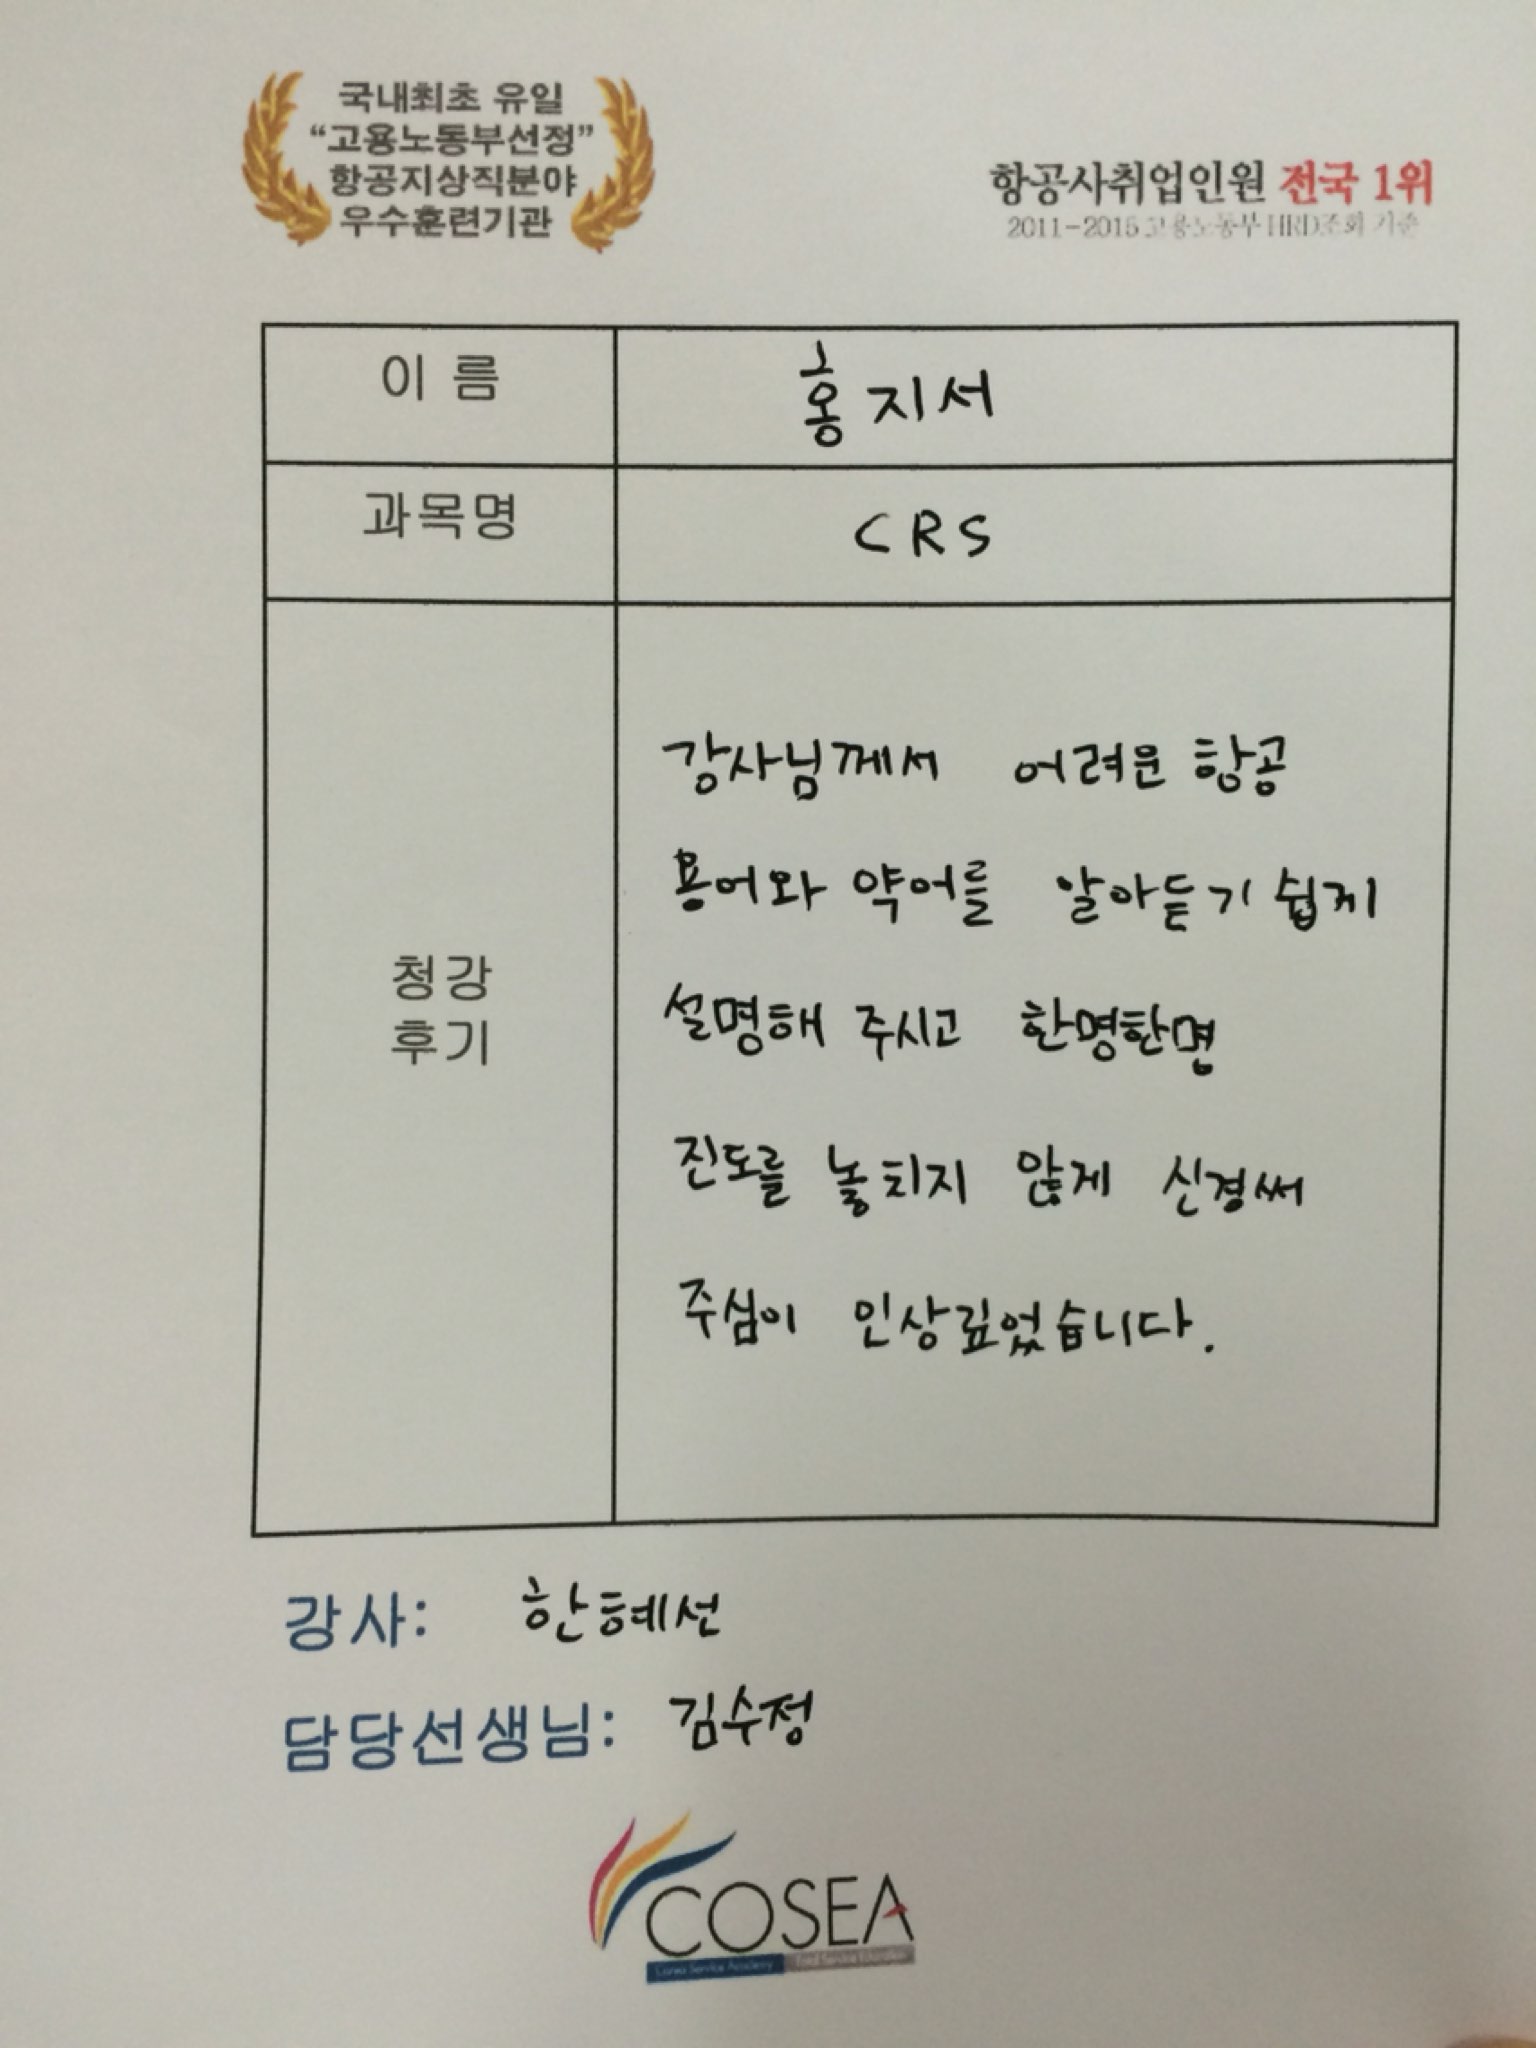 국내최초 유일
“고용노동부선정”
항공지상직분야
우수훈련기관
항공사취업인원 전국 1위
2011-2015 고용노동부 HRD조회 기준
이 름
홍지서
과목명
CRS
청강
후기
강사님께서 어려운 항공
용어와 약어를 알아듣기 쉽게
설명해 주시고 한명한명
진도를 놓치지 않게 신경써
주심이 인상깊었습니다.
강사: 한혜선
담당선생님: 김수정
COSEA
Korea Service Academy Total Service Education